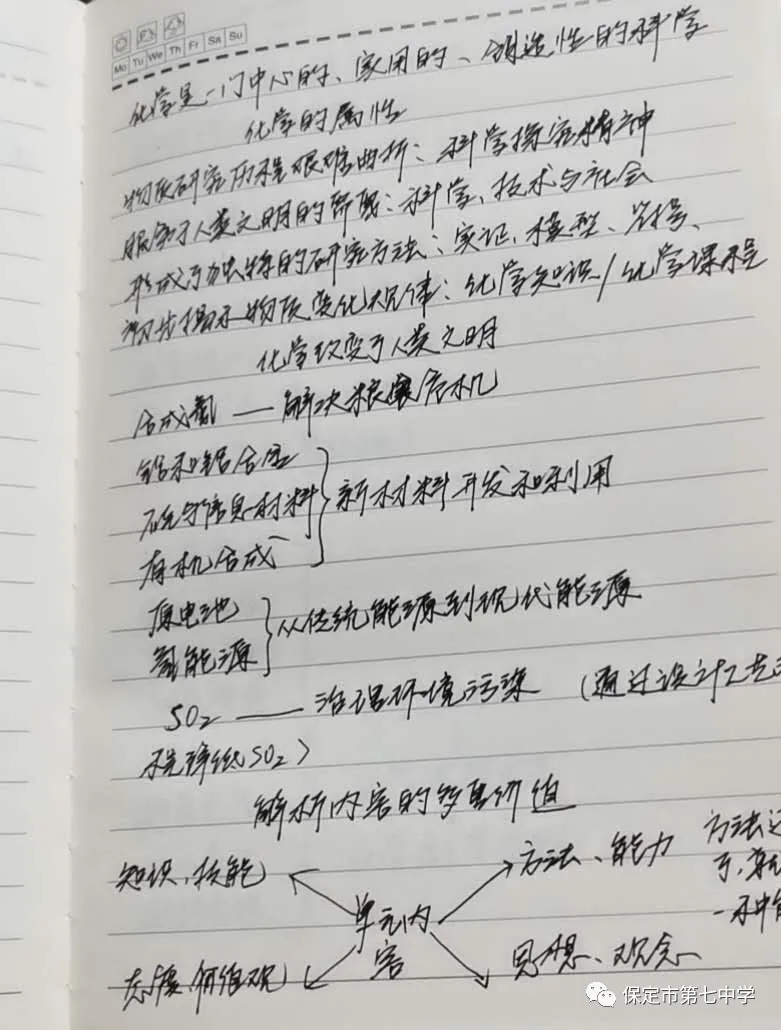 Mo Tu We Th Fr Sa Su
化学是一门中心的、实用的、创造性的科学
化学的属性
物质研究历程艰难曲折：科学探究精神
服务于人类文明的发展：科学、技术与社会
形成了独特的研究方法：实证、模型、符号、
初步揭示物质变化规律：化学知识/化学课程
化学改变了人类文明
合成氨 — 解决粮食危机
铝和铝合金
硅与信息材料
有机合成
新材料开发和利用
原电池
氢能源
从传统能源到现代能源
SO2 — 治理环境污染 (通过设计工艺流
程降低SO2)
解析内容的多重价值
知识、技能
方法、能力
方法
一种
单元内
容
态度、价值观
思想、观念
保定市第七中学